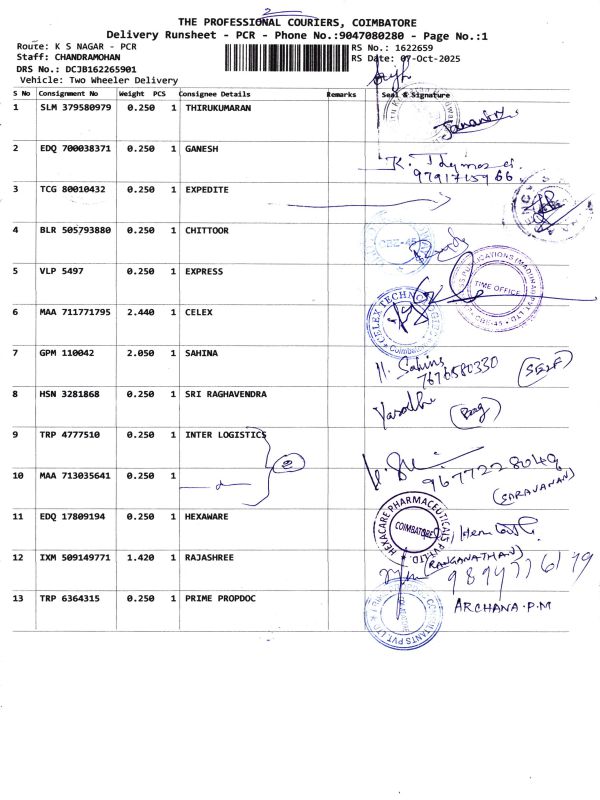 2
THE PROFESSIONAL COURIERS, COIMBATORE
Delivery Runsheet - PCR - Phone No.:9047080280 - Page No.:1
Route: K S NAGAR - PCR
RS No.: 1622659
Staff: CHANDRAMOHAN
RS Date: 07-Oct-2025
DRS No.: DCJB162265901
Vehicle: Two Wheeler Delivery
S No Consignment No Weight PCS Consignee Details Remarks Seal & Signature
1 SLM 379580979 0.250 1 THIRUKUMARAN
2 EDQ 700038371 0.250 1 GANESH
3 TCG 80010432 0.250 1 EXPEDITE
4 BLR 505793880 0.250 1 CHITTOOR
CBE-45
5 VLP 5497 0.250 1 EXPRESS
TIME OFFICE
6 MAA 711771795 2.440 1 CELEX
7 GPM 110042 2.050 1 SAHINA
7676580330
(SELF)
8 HSN 3281868 0.250 1 SRI RAGHAVENDRA
9 TRP 4777510 0.250 1 INTER LOGISTICS
2
9677228049
10 MAA 713035641 0.250 1
(SARAVANAN)
11 EDQ 17809194 0.250 1 HEXAWARE
HEXACARE PHARMACEUTICALS PVT.LTD.
COIMBATORE
12 IXM 509149771 1.420 1 RAJASHREE
(RANGANATHAN)
13 TRP 6364315 0.250 1 PRIME PROPDOC
ARCHANA.P.M